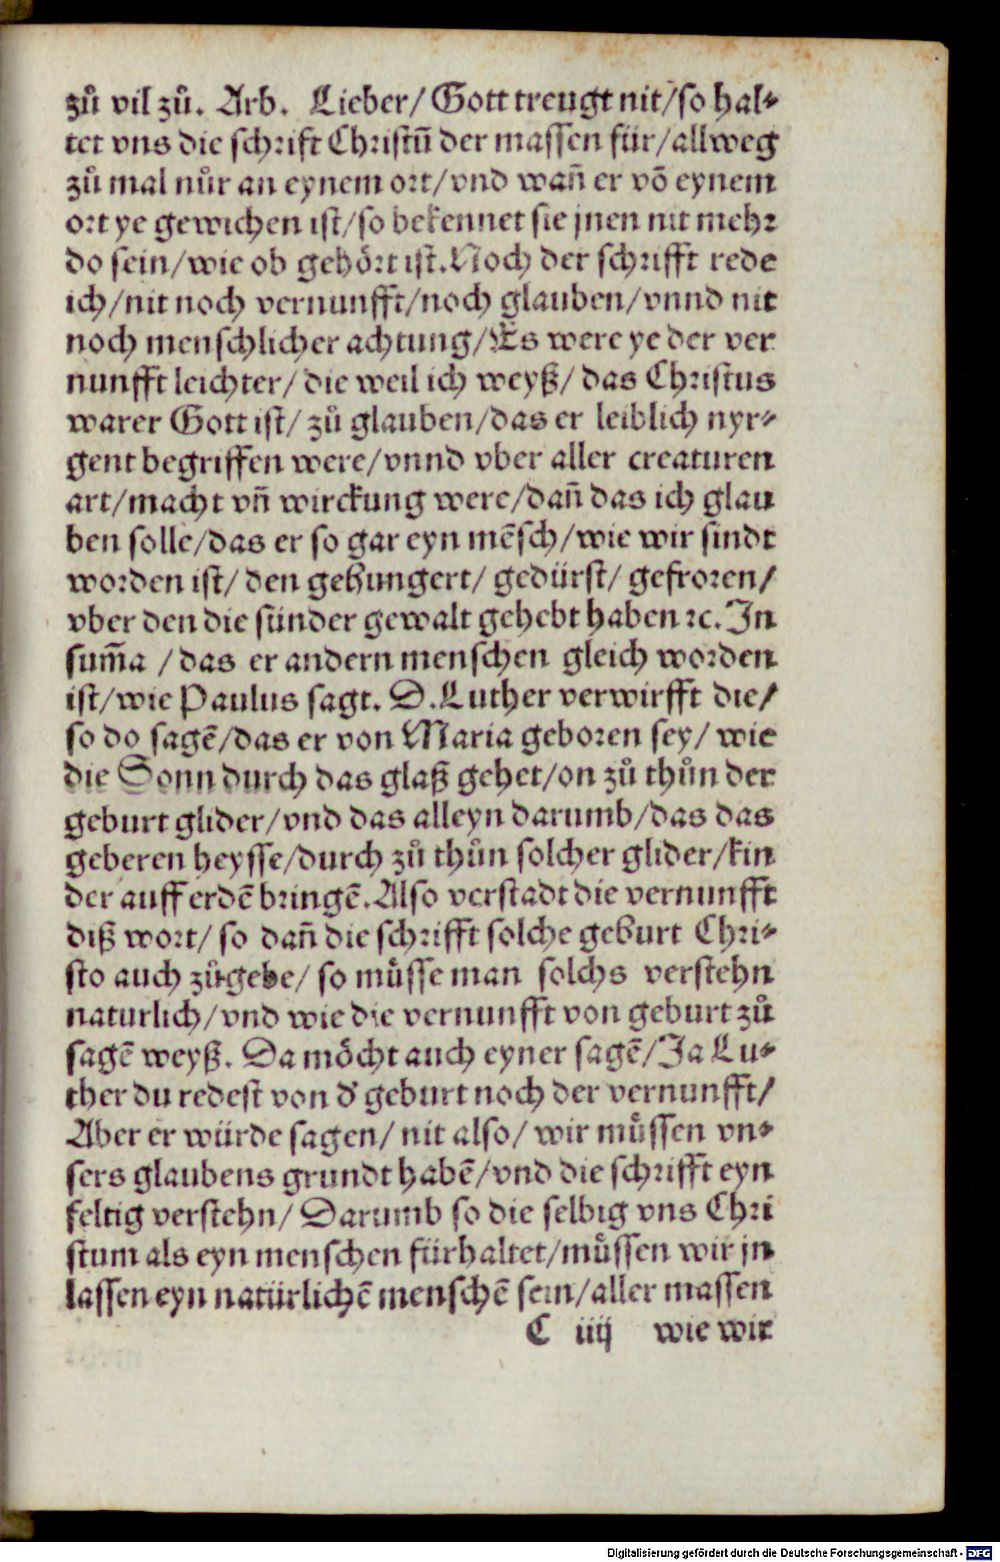 zů vil zů. Arb. Lieber/ Gott treugt nit/so hal⸗
tet vns die schrift Christū der massen für/allweg
zů mal nůr an eynem ort/vnd wañ er vō eynem
ort ye gewichen ist/so bekennet sie jnen nit mehr
do sein/wie ob gehört ist. Noch der schrifft rede
ich/nit noch vernunfft/noch glauben/vnnd nit
noch menschlicher achtung/Es were ye der ver
nunfft leichter/ die weil ich weyß/ das Christus
warer Gott ist/ zů glauben/das er leiblich nyr⸗
gent begriffen were/vnnd vber aller creaturen
art/macht vñ wirckung were/dañ das ich glau
ben solle/das er so gar eyn mēsch/wie wir sindt
worden ist/ den gehungert/ gedürst/ gefroren/
vber den die sünder gewalt gehebt haben ⁊c. In
sum̄a /das er andern menschen gleich worden
ist/wie Paulus sagt. D.Luther verwirfft die/
so do sagē/das er von Maria geboren sey/ wie
die Sonn durch das glaß gehet/on zů thůn der
geburt glider/vnd das alleyn darumb/das das
geberen heysse/durch zů thůn solcher glider/kin
der auff erdē bringē.Also verstadt die vernunfft
diß wort/ so dañ die schrifft solche geburt Chri⸗
sto auch zůgebe/ so můsse man solchs verstehn
naturlich/vnd wie die vernunfft von geburt zů
sagē weyß. Da möcht auch eyner sagē/Ja Lu⸗
ther du redest von d' geburt noch der vernunfft/
Aber er würde sagen/ nit also/ wir můssen vn⸗
sers glaubens grundt habē/vnd die schrifft eyn
feltig verstehn/ Darumb so die selbig vns Chri
stum als eyn menschen fürhaltet/můssen wir jn
lassen eyn natürlichē menschē sein/aller massen
C iiij wie wir
Digitalisierung gefördert durch die Deutsche Forschungsgemeinschaft - DFG